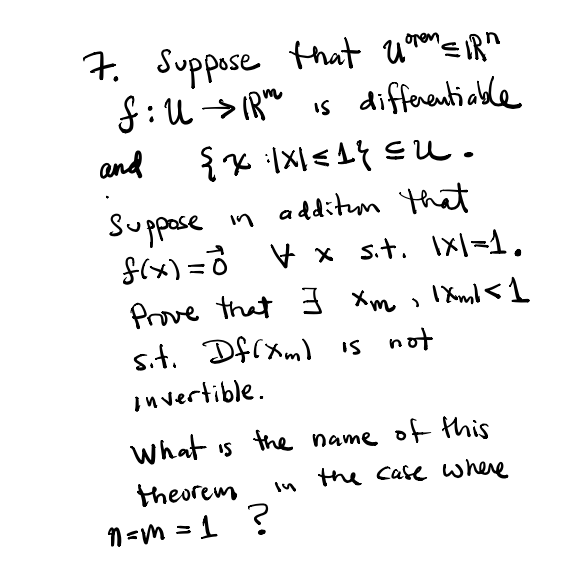 7. Suppose that U^open ⊆ ℝ^n
f : U → ℝ^m is differentiable
and {x : |x| ≤ 1} ⊆ U.
Suppose in addition that
f(x) = 0⃗ ∀ x s.t. |x|=1.
Prove that ∃ x_m , |x_m| < 1
s.t. Df(x_m) is not
invertible.
What is the name of this
theorem in the case where
n=m=1 ?